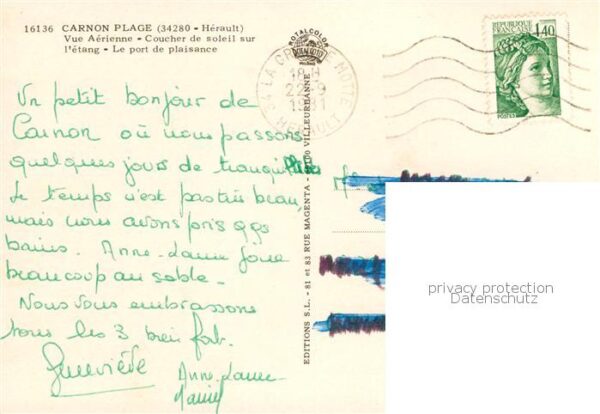 16136 CARNON PLAGE (34280 - Hérault)
Vue Aérienne - Coucher de soleil sur
l'étang - Le port de plaisance
ROTALCOLOR
RÉPUBLIQUE
FRANÇAISE
1,40
POSTES
34 LA GRANDE MOTTE
18 H
22-9
1981
HERAULT
Un petit bonjour de
Carnon où nous passons
quelques jours de tranquillité
Le temps n'est pas très beau
mais nous avons pris qqs
bains. Anne-Laure joue
beaucoup au sable.
Nous vous embrassons
tous les 3 bien fort.
Geneviève
Anne-Laure
EDITIONS S.L. - 81 et 83 RUE MAGENTA - VILLEURBANNE
privacy protection
Datenschutz